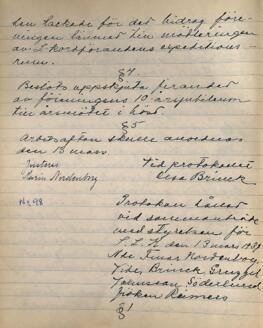 sen tackade för det bidrag före-
ningen lämnat till möbleringen
av L kordförandens expeditions-
rum.
§4
Beslöts uppskjuta firandet
av föreningens 10-årsjubileum
till årsmötet i höst.
§5
Arbetsafton skulle anordnas
den 15 mars.
Justeras Vid protokollet
Karin Nordenborg Elsa Brinck
No 98 Protokoll hållet
vid sammanträde
med styrelsen för
den 13 mars 1939
Nds Fruar Nordenborg,
Brinck
Johansson Söderlund
fröken
§1